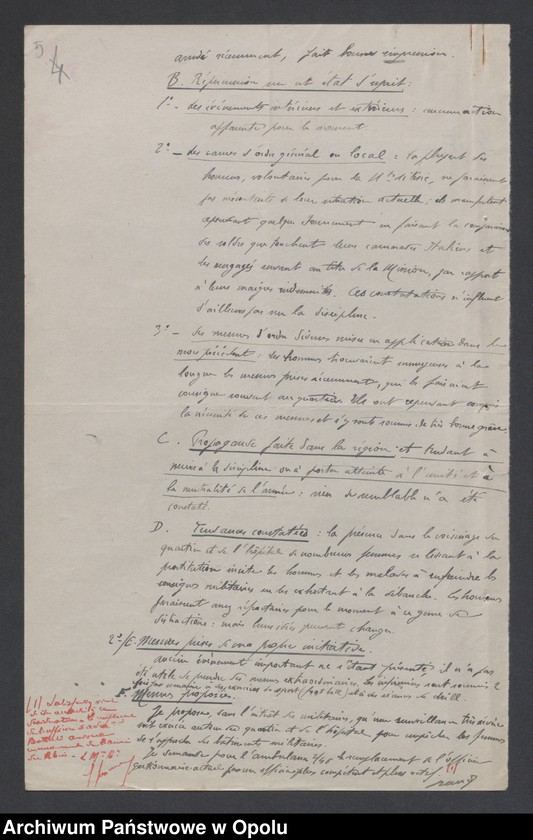 5
4
arrivé récemment, fait bonne impression.
B. Répercussion sur cet état d'esprit :
1° - des événements intérieurs et extérieurs : aucune action
apparente pour le moment.
2° - des causes d'ordre général ou local : la plupart des
hommes, volontaires pour la Hte Silésie, ne paraissent
pas mécontents de leur situation actuelle ; ils manifestent
cependant quelque étonnement en faisant la comparaison
des soldes que touchent leurs camarades Italiens et
les engagés servant au titre de la Mission, par rapport
à leurs maigres indemnités. Ces constatations n'influent
d'ailleurs pas sur la discipline.
3° - des mesures d'ordre divers mises en application dans le
mois précédent : les hommes trouvaient ennuyeuses à la
longue les mesures prises récemment, qui les faisaient
consigner souvent au quartier. Ils ont cependant compris
la nécessité de ces mesures et s'y sont soumis de très bonne grâce
C. Propagande faite dans la région et tendant à
nuire à la discipline ou à porter atteinte à l'unité et à
la neutralité de l'armée : rien de semblable n'a été
constaté.
D. Tendances constatées : la présence dans le voisinage du
quartier et de l'hôpital de nombreuses femmes se livrant à la
prostitution incite les hommes et les malades à enfreindre les
consignes militaires en les exhortant à la débauche. Les hommes
paraissent assez réfractaires pour le moment à ce genre de
distraction : mais leurs idées peuvent changer.
2°/E. Mesures prises de ma propre initiative.
aucun événement important ne s'étant présenté, il n'a pas
été utile de prendre des mesures extraordinaires. Les infirmiers sont soumis 2
fois par semaine à des exercices de sport (foot ball) et à des séances de
F. Mesures proposées.
Je propose, dans l'intérêt des militaires, qu'une surveillance très sévère
soit exercée autour du quartier et de l'hôpital, pour empêcher les femmes
de s'approcher des bâtiments militaires.
Je demande pour l'ambulance le remplacement de l'officier
gestionnaire actuel par un officier plus compétent et plus actif (1)
(1) Satisfaction
de l'officier
Archiwum Państwowe w Opolu